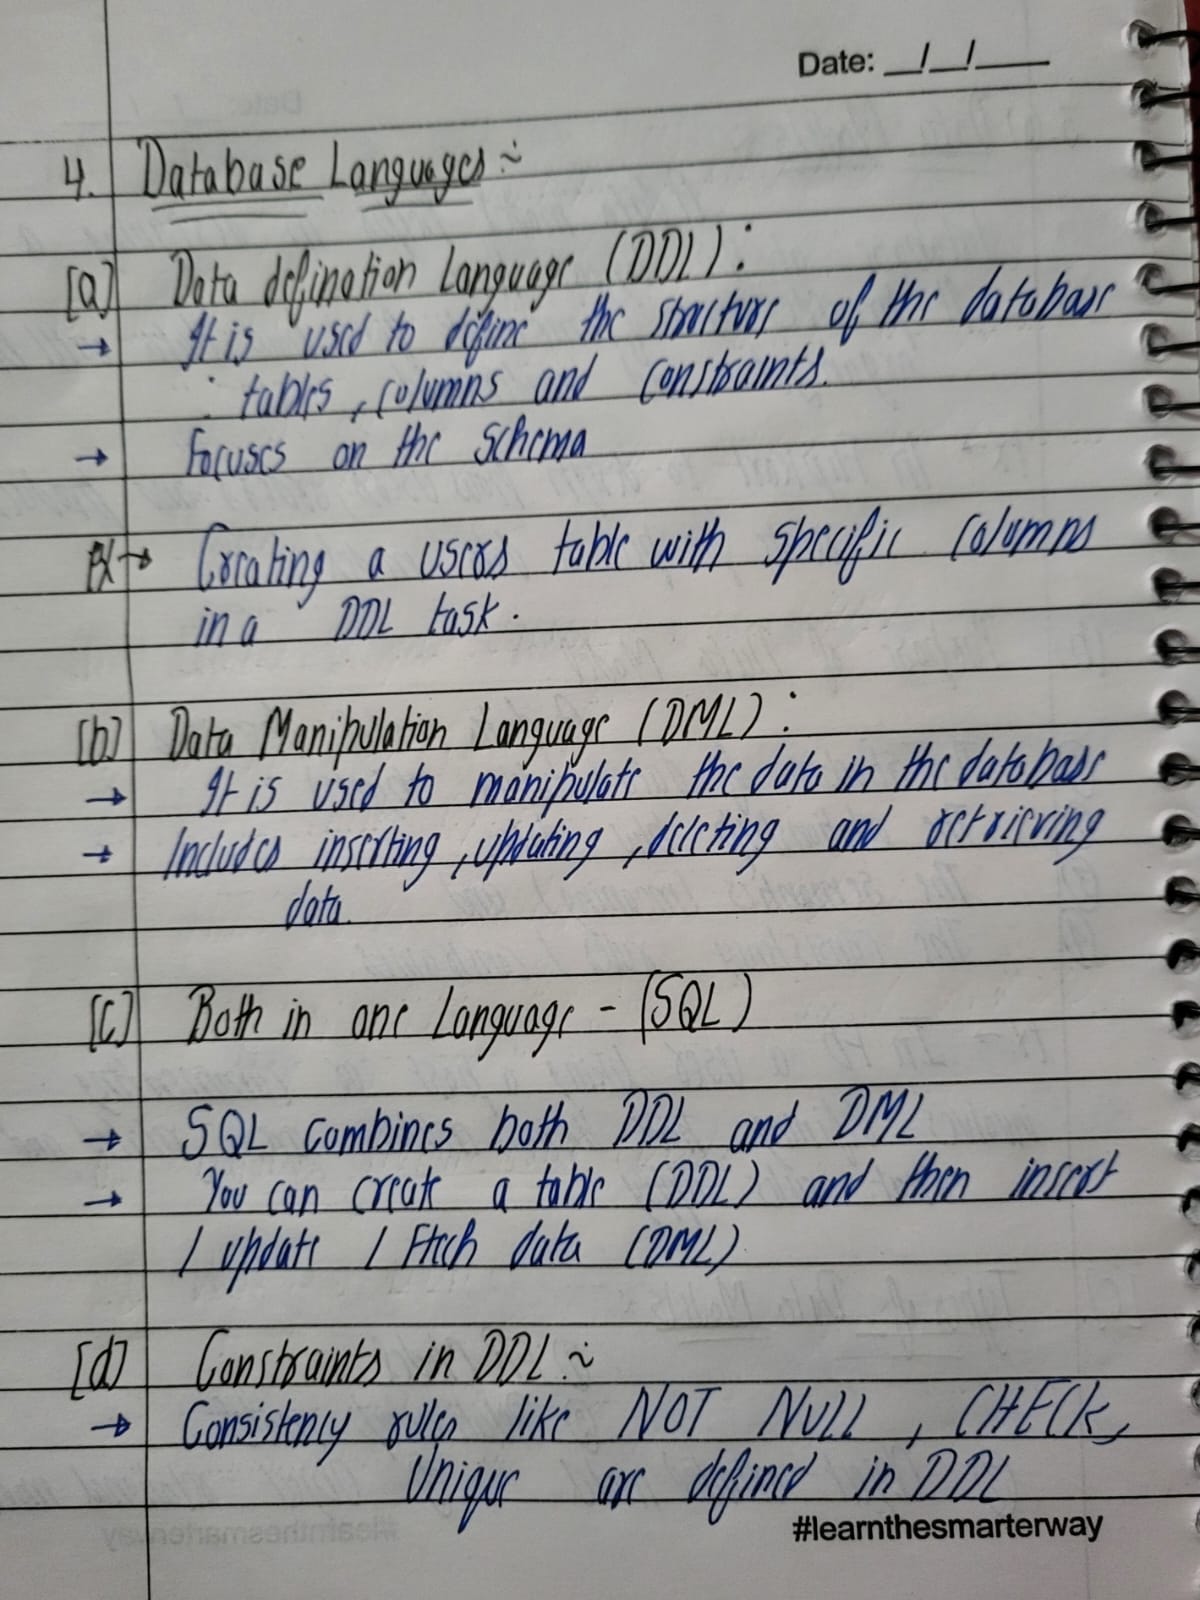 Date: __/__/____
4. Database Languages :~
[a] Data defination Language (DDL) :
→ It is used to define the structure of the database
: tables, columns and constraints.
→ Focuses on the Schema
Ex → Creating a users table with specific columns
in a DDL task.
[b] Data Manipulation Language (DML) :
→ It is used to manipulate the data in the database
→ Includes inserting, updating, deleting and retrieving
data.
[c] Both in one Language - (SQL)
→ SQL combines both DDL and DML
→ You can create a table (DDL) and then insert
/ update / Fetch data (DML)
[d] Constraints in DDL :~
→ Consistency rules like NOT NULL, CHECK,
Unique are defined in DDL
#learnthesmarterway